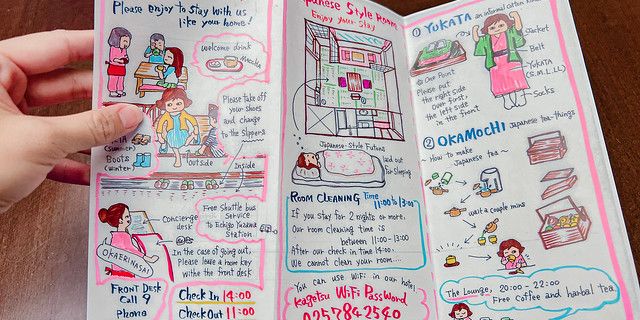 Please Enjoy to Stay with us
like your home!
welcome drink
Matcha
Please take off
your shoes
and change
to the slippers
(summer)
Boots
(winter)
outside
Inside
Concierge
desk
Free Shuttle bus
Service
to Echigo Yuzawa
Station
OKAERINASAI
In the case of going out,
Please leave a room key
withe the front desk
FRONT DESK
Call 9
Phone
Check In 14:00
Check Out 11:00
Japanese Style Room
Enjoy your stay
Japanese-Style Futons
laid out
for sleeping
ROOM CLEANING Time
11:00~13:00
If you stay for 2 nights or more.
Our room cleaning time is
between 11:00-13:00
After our check in time 14:00.
We cannot clean your room....
You can use WiFi in our hotel
Kagetsu WiFi Password
0257842540
① YUKATA an informal cotton kimono
Jacket
Belt
YUKATA
(S.M.L.LL)
Socks
One Point
Please put
the right side
over first,
the left side
in the front
② OKAMOCHI Japanese tea-things
~ How to make
Japanese tea ~
wait a couple mins
The Lounge, 20:00-22:00
Free coffee and harbal tea